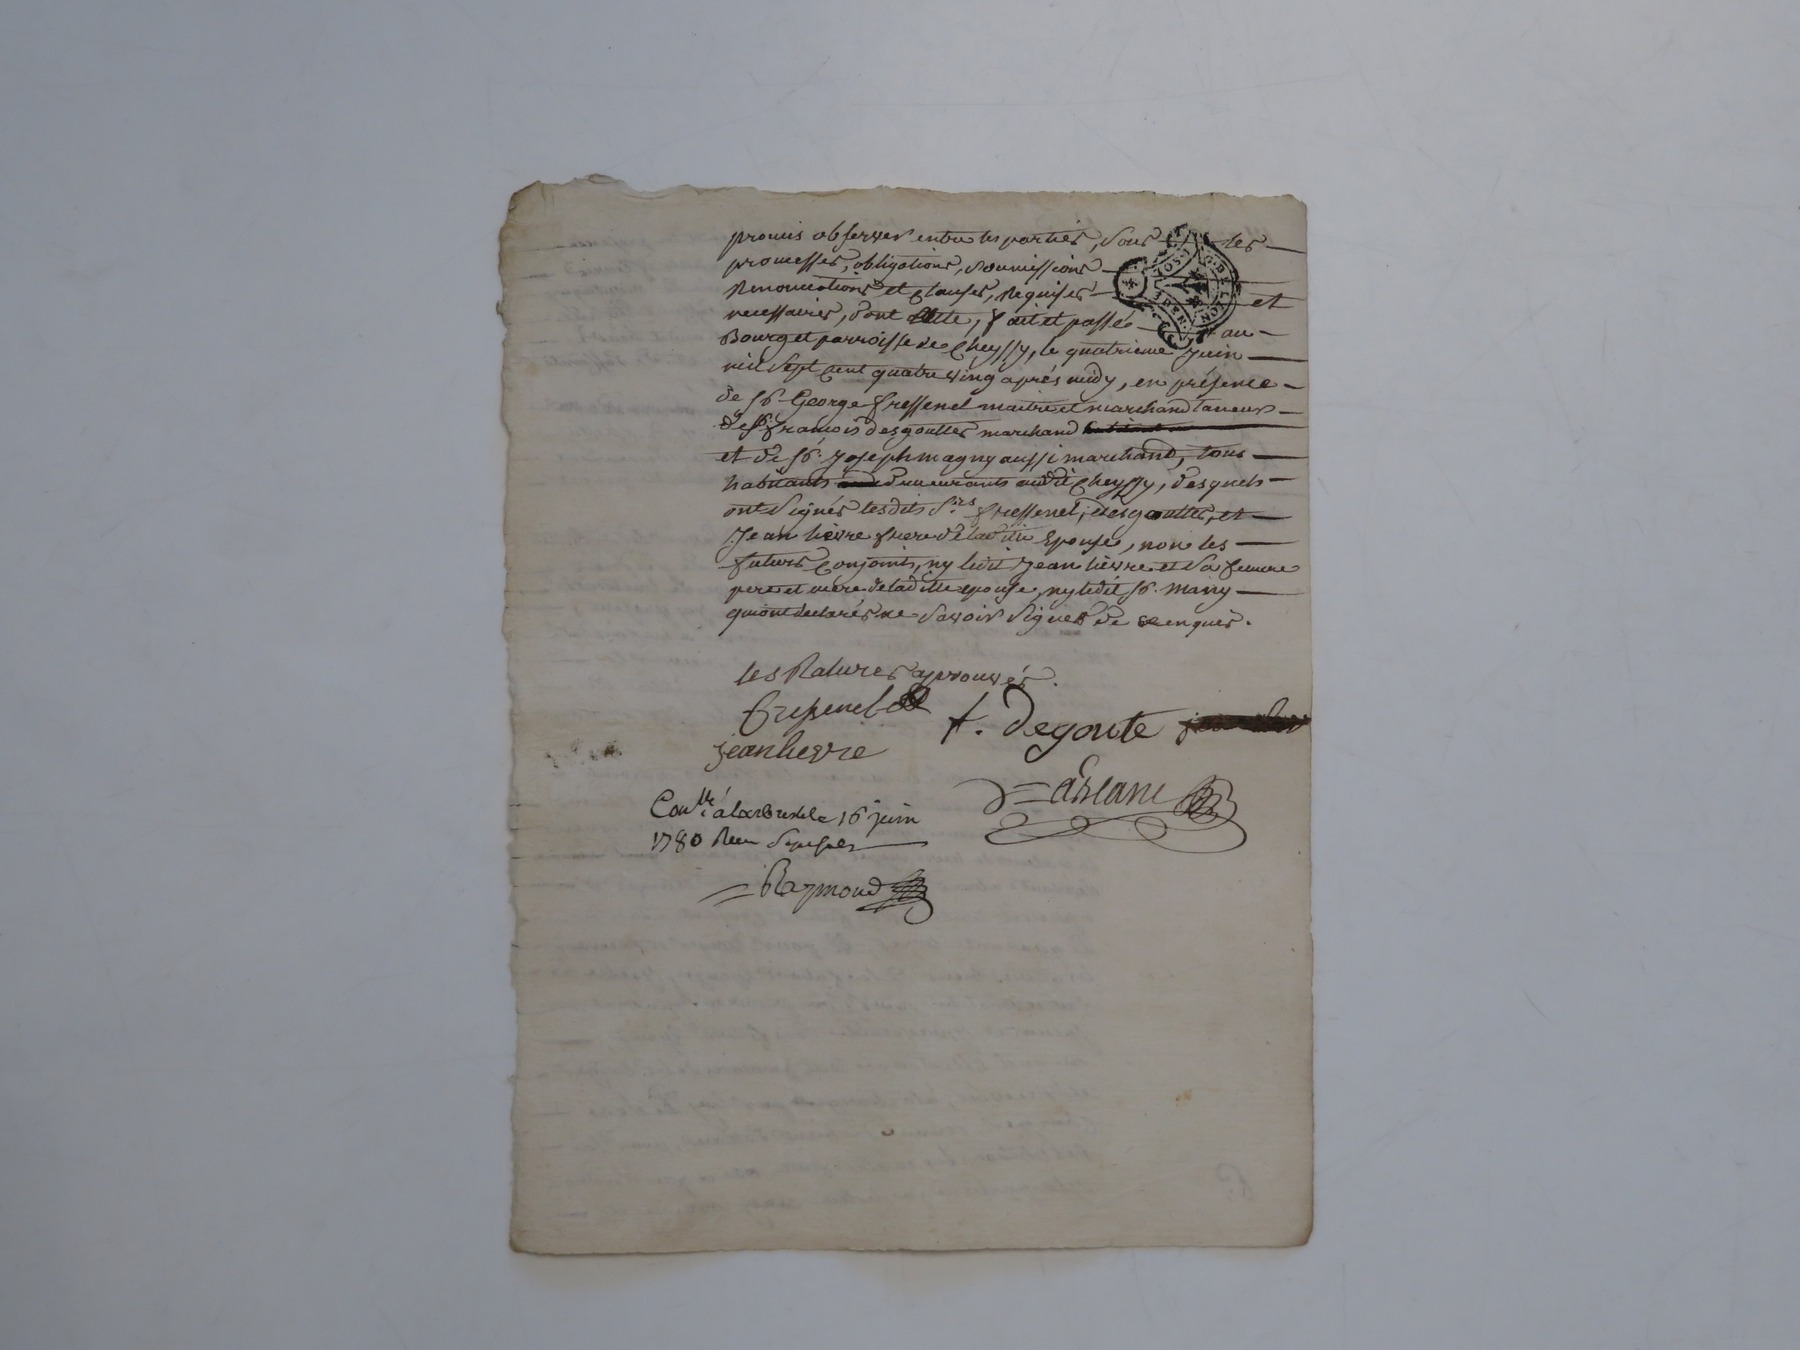 promis observer entre les parties, sous les
promesses, obligations, soumissions
Renonciations et clauses, Requises et
necessaires, dont acte, fait et passé au
Bourg et parroisse de Cheyssy, le quatrieme Juin
mil sept cent quatre ving après midy, en présence
de Sr. George fressenel maitre et marchand taneur
de Sr. francois desgouttes marchand
et de Sr. Joseph magny aussi marchand, tous
habitants demeurants audit Cheyssy, desquels
ont signés lesdits Srs. fressenel, desgouttes, et
Jean lievre frere de laditte Epouse, non les
futurs Conjoints, ny ledit Jean lievre et sa femme
pere et mere de laditte epouse, ny ledit Sr. Many
qui ont declarés ne savoir signer de ce enquis.
les Ratures aprouvés.
fressenel
f. Degoute
jean lievre
Conllé à larbresle 16 juin
1780 Recu
Raymond
G. DE LYON